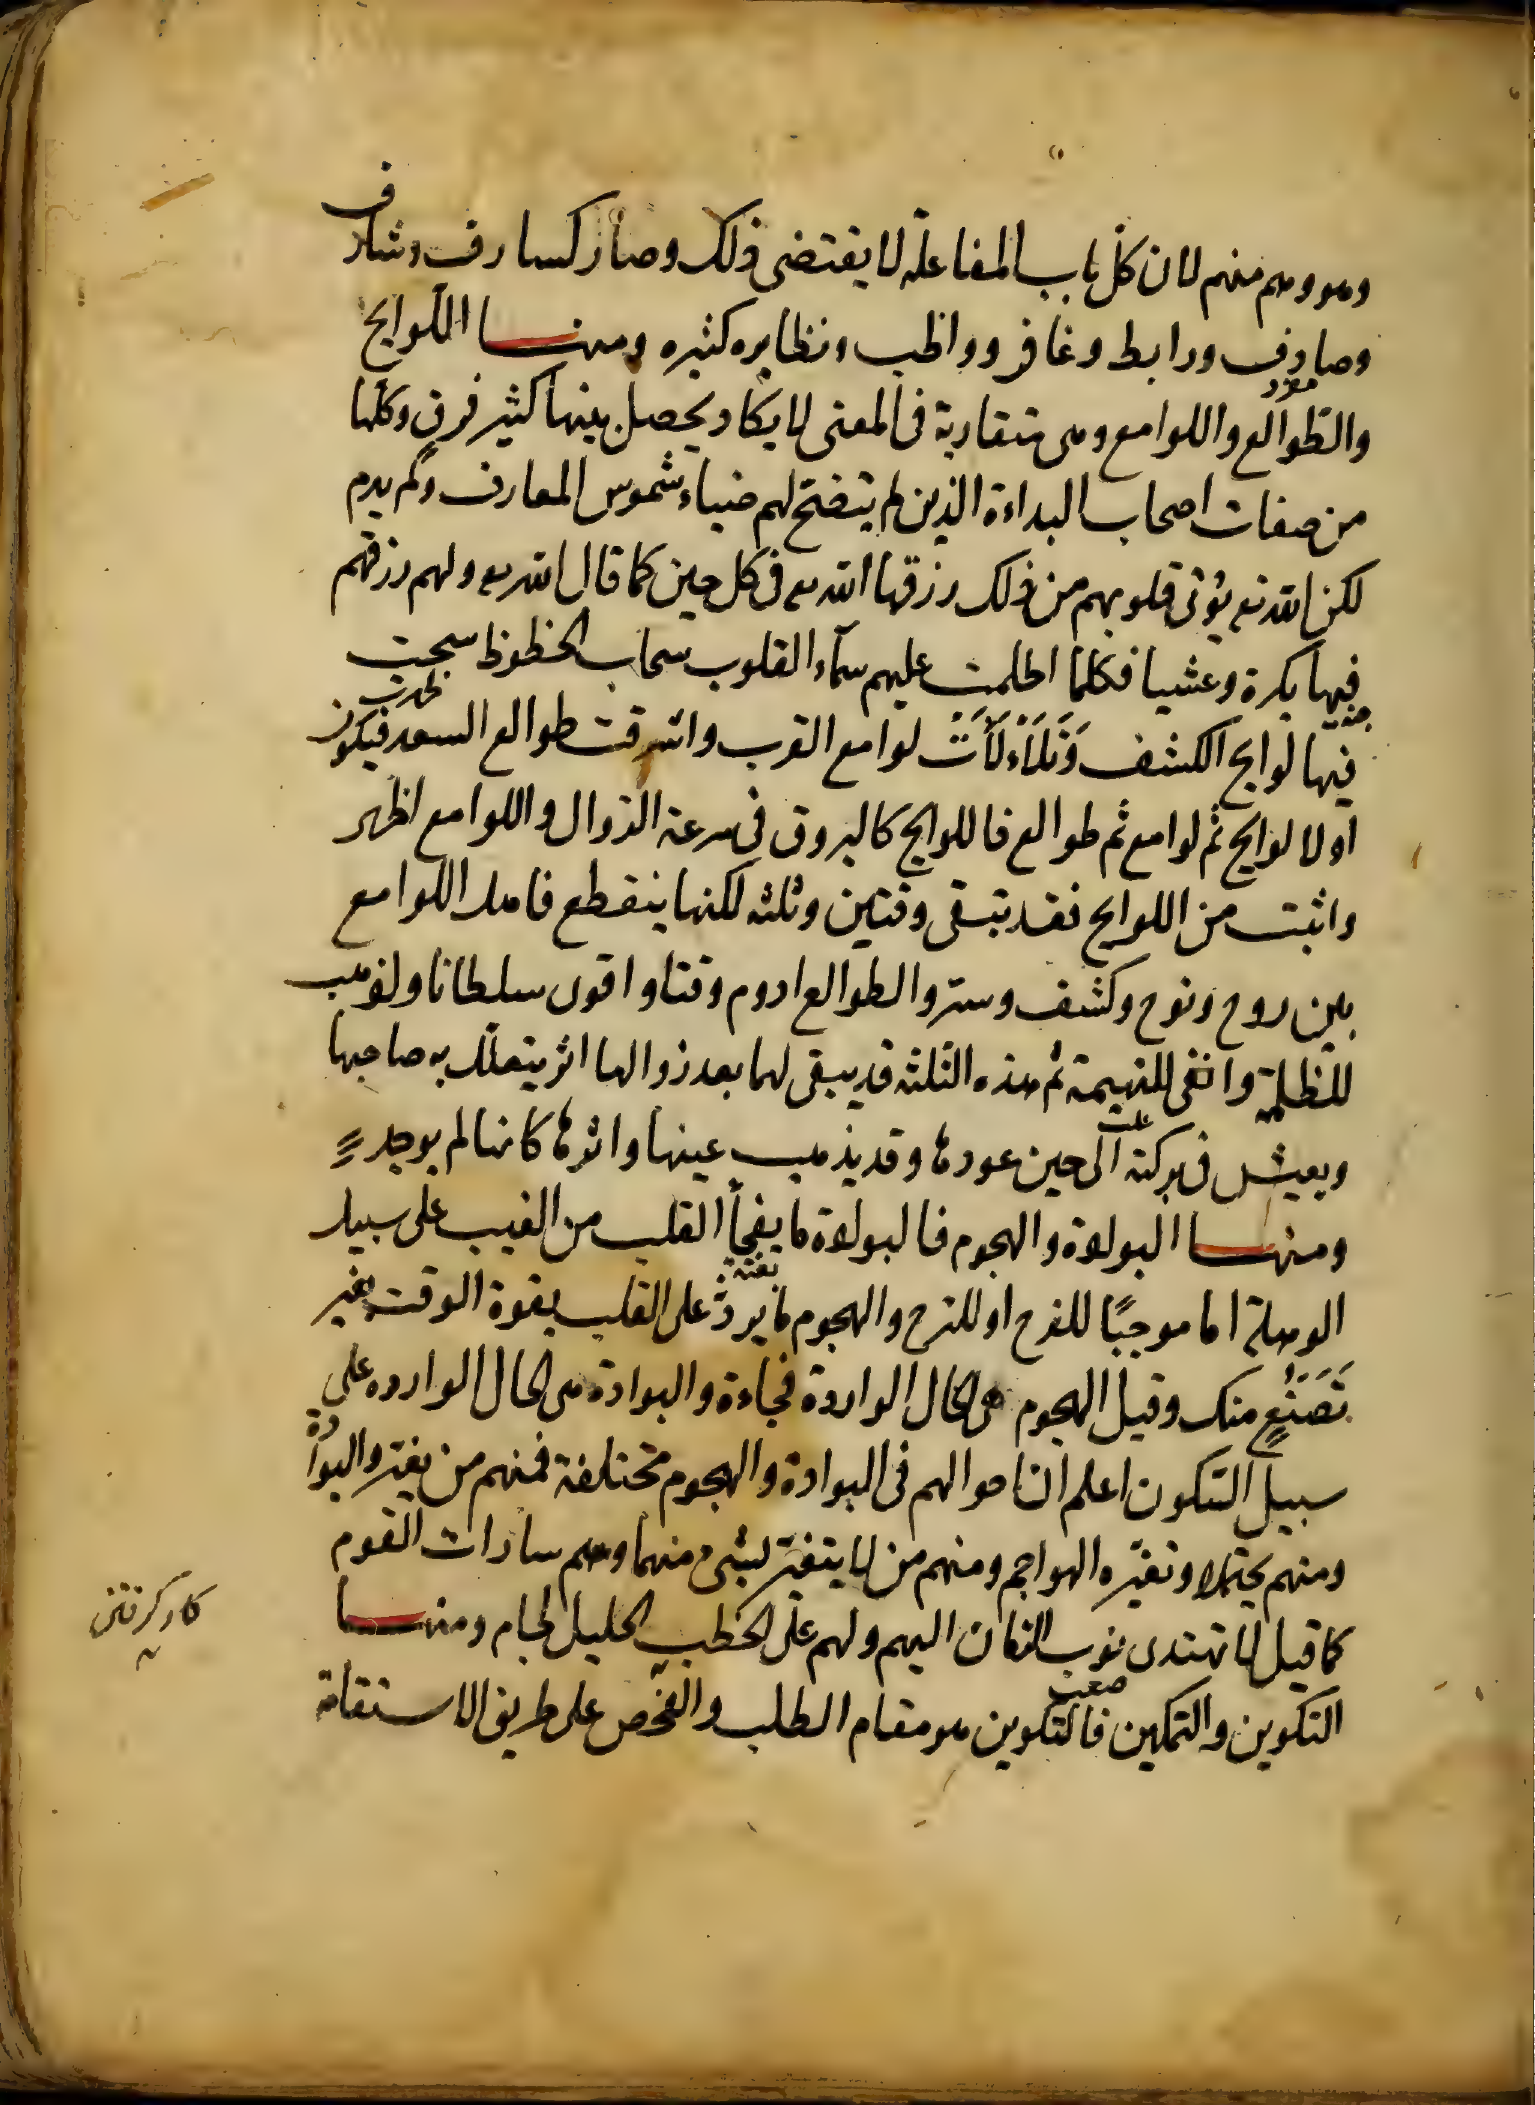 وهو وهم منهم لان كل باب المفاعلة لا يقتضى ذلك وصار كسارق وشارف
وصادف ورابط وغافر وواظب ونظايره كثيره ومنها اللوايح
والطوالع واللوامع وهى متقاربة فى المعنى لا يكاد يحصل بينها كثير فرق وكلها
من صفات اصحاب البداءة الذين لم يتضح لهم ضياء شموس المعارف ولم يدم
لكن الله تع يؤتى قلوبهم من ذلك رزقها الله تع فى كل حين كما قال الله تع ولهم رزقهم
فيها بكرة وعشيا فكلما اظلمت عليهم سمآء القلوب سحاب الحظوظ سجت
فيها لوايح الكشف وَتَلَاءْلَأَتْ لوامع القرب واشرقت طوالع السعد فيكون
اولا لوايح ثم لوامع ثم طوالع فاللوايح كالبروق فى سرعة الزوال واللوامع اظهر
واثبت من اللوايح فقد تبقى وقتين وثلثه لكنها ينقطع فاهل اللوامع
بين روح ونوح وكشف وستر والطوالع ادوم وقتا واقوى سلطانا واذهب
للظلمة وانفى للتهيمة ثم هذه الثلثه قد يبقى لها بعد زوالها اثر يتعلل به صاحبها
ويعيش فى بركته الى حين عودها وقد يذهب عينها واثرها كانها لم يوجد
ومنها البواده والهجوم فالبواده ما يفجأ القلب من الغيب على سبيل
الوهلة اما موجبًا للفرح او للترح والهجوم ما يرد بغتة على القلب بقوة الوقت بغير
تَصَنُّعٍ منك وقيل الهجوم هى الحال الواردة فجاءة والبوادة هى الحال الوارده على
سبيل التكون اعلم ان احوالهم فى البوادة والهجوم مختلفة فمنهم من يغيره البوادة
ومنهم يحتملا وتغيره الهواجم ومنهم من لا يتغير لشئ منهما وهم سادات القوم
كما قيل لا تهتدى نوب الزمان اليهم ولهم على الخطب الجليل لجام ومنها
التكوين والتمكين فالتكوين هو مقام الطلب والفحص على طريق الاستقامة
كار كرفتن